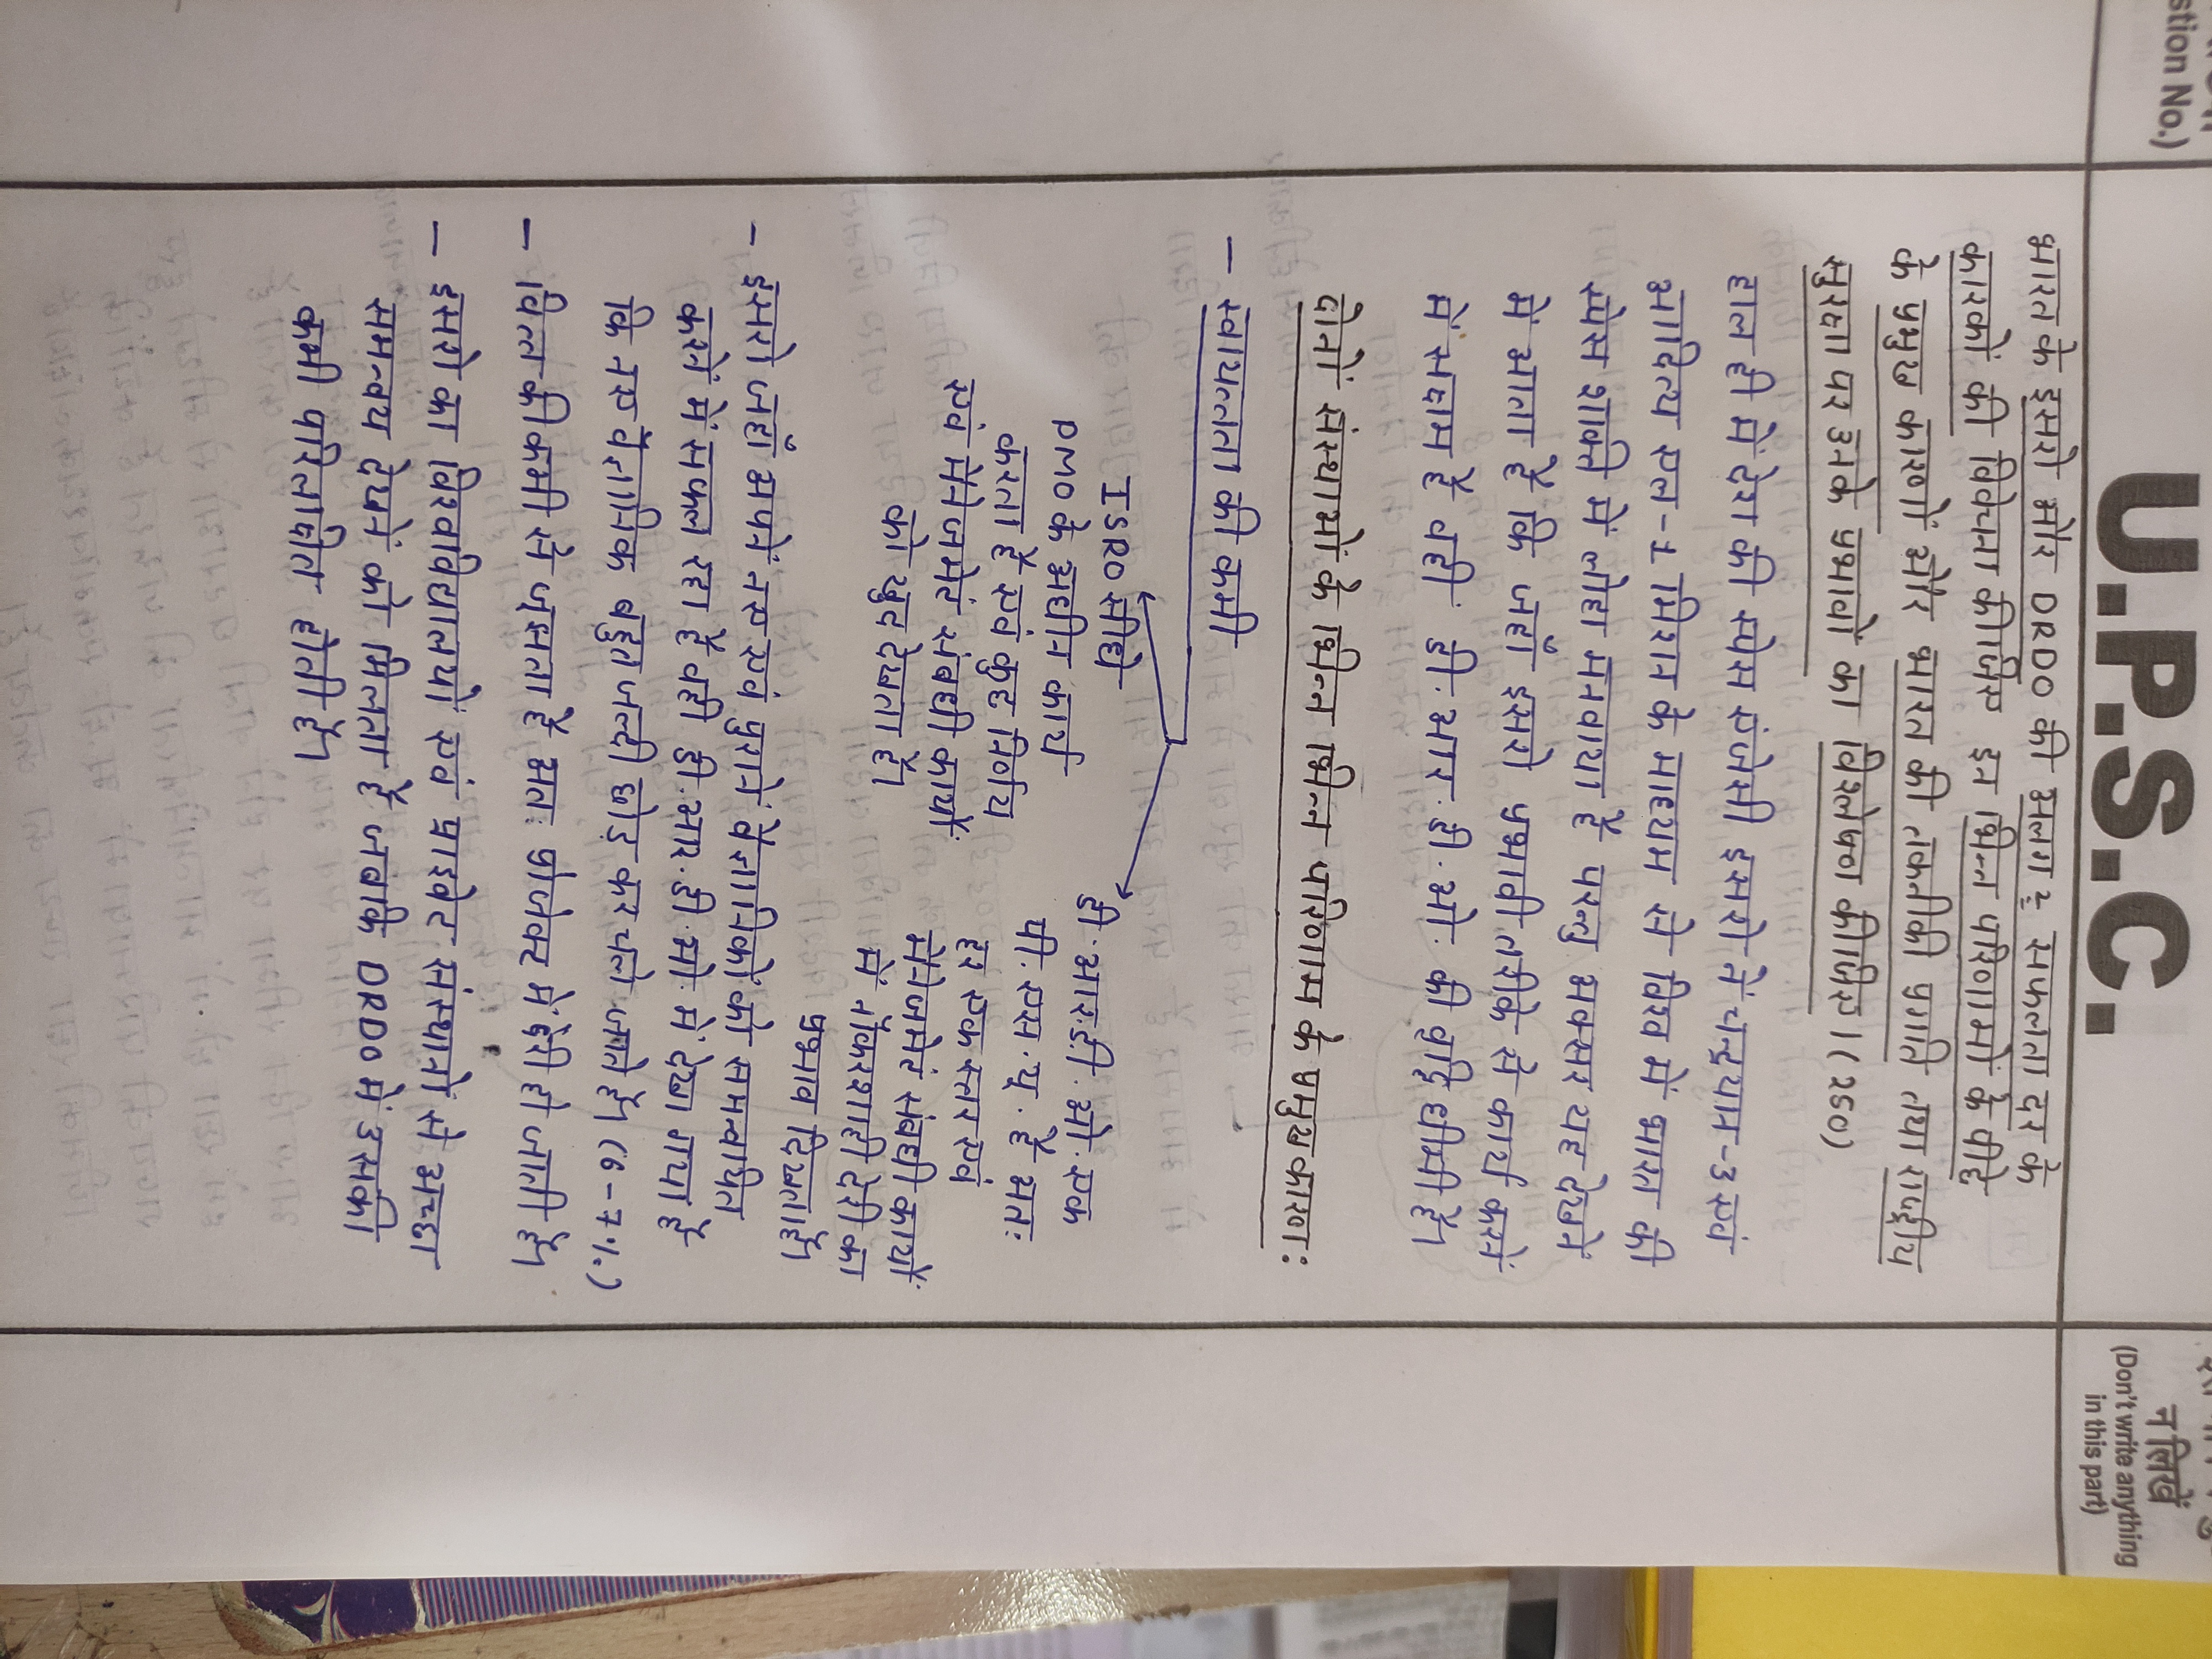 stion No.)
U.P.S.C.
न लिखें
(Don't write anything
in this part)
भारत के इसरो और DRDO की अलग २ सफलता दर के
कारकों की विवेचना कीजिए इन भिन्न परिणामों के पीछे
के प्रमुख कारणों और भारत की तकनीकी प्रगति तथा राष्ट्रीय
सुरक्षा पर उनके प्रभावों का विश्लेषण कीजिए। (250)
हाल ही में देश की स्पेस एंजेसी इसरो ने चन्द्रयान-3 एवं
आदित्य एल-1 मिशन के माध्यम से विश्व में भारत की
स्पेस शक्ति में लोहा मनवाया हैं परन्तु अक्सर यह देखनें
में आता हैं कि जहाँ इसरो प्रभावी तरीके से कार्य करनें
में सक्षम हैं वही. डी. आर. डी. ओ. की वृद्वि धीमी हैं।
दोनों संस्थाओं के भिन्न भिन्न परिणाम के प्रमुख कारण :
– स्वायत्तता की कमी
ISRO सीधे
PMO के अधीन कार्य
करता हैं एवं कुछ निर्णय
एवं मेनेजमेंट संबधी कार्यो
को खुद देखता हैं।
डी. आर. डी. ओ. एक
पी. एस. यू. हैं अतः
हर एक स्तर एवं
मेनेजमेंट संबधी कार्यो
में नौकरशाही देरी का
प्रभाव दिखता हैं।
– इसरो जहाँ अपनें नए एवं पुरानें वैज्ञानिकों को समन्वयित
करनें में सफल रहा हैं वही डी. आर. डी. ओ. में देखा गया हैं
कि नए वैज्ञानिक बहुत जल्दी छोड़ कर चले जाते हैं। (6-7%)
– वित्त की कमी से जूझता हैं अतः प्रोजेक्ट में देरी हो जाती हैं।
– इसरो का विश्वविद्यालयो एवं प्राइवेट संस्थानो से अच्छा
समन्वय देखनें को मिलता हैं जबकि DRDO में इसकी
कमी परिलक्षित होती हैं।